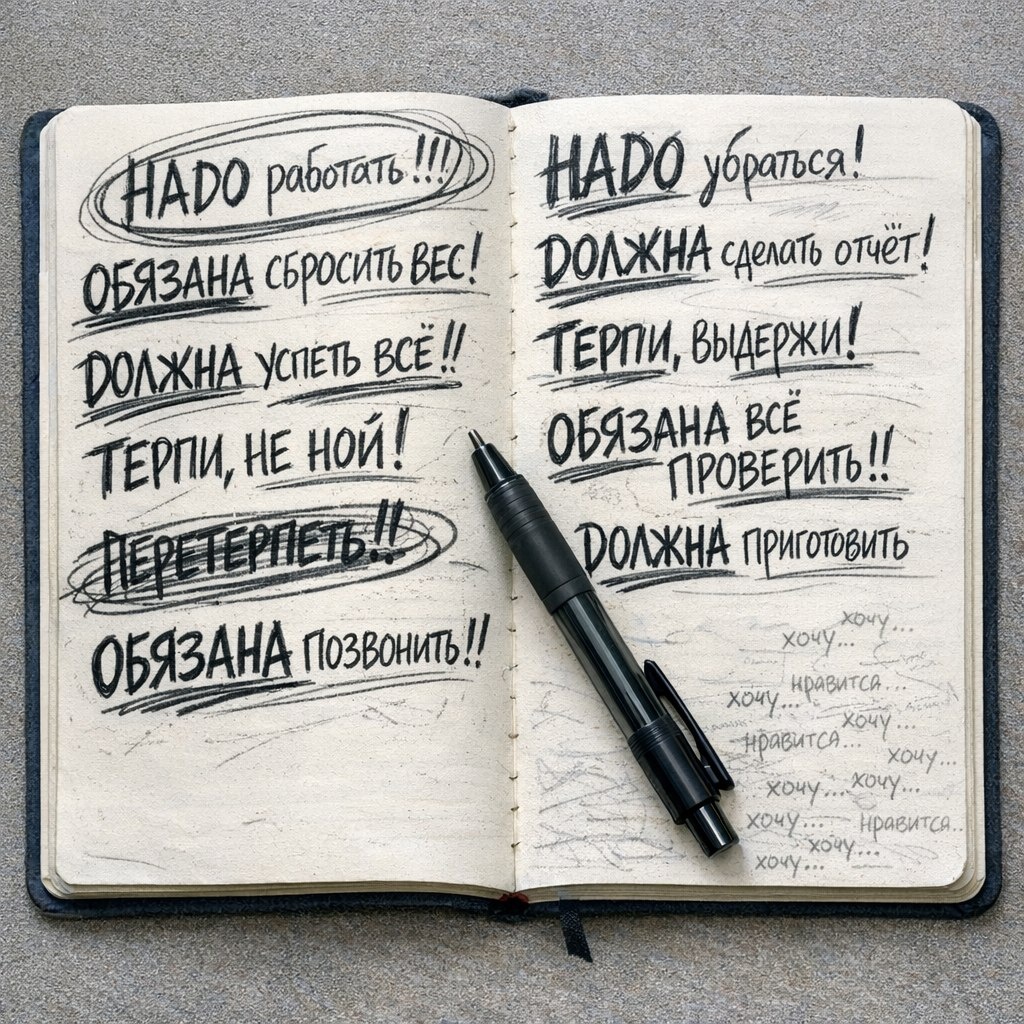 НАДО работать!!!
ОБЯЗАНА СБРОСИТЬ ВЕС!
ДОЛЖНА УСПЕТЬ ВСЁ!!
ТЕРПИ, НЕ НОЙ!
ПЕРЕТЕРПЕТЬ!!
ОБЯЗАНА ПОЗВОНИТЬ!!
НАДО убраться!
ДОЛЖНА сделать отчёт!
ТЕРПИ, ВЫДЕРЖИ!
ОБЯЗАНА ВСЁ
ПРОВЕРИТЬ!!
ДОЛЖНА ПРИГОТОВИТЬ
хочу...
хочу...
нравится...
хочу...
хочу...
нравится...
хочу...
хочу...
хочу...
хочу...
нравится..
хочу...
хочу...